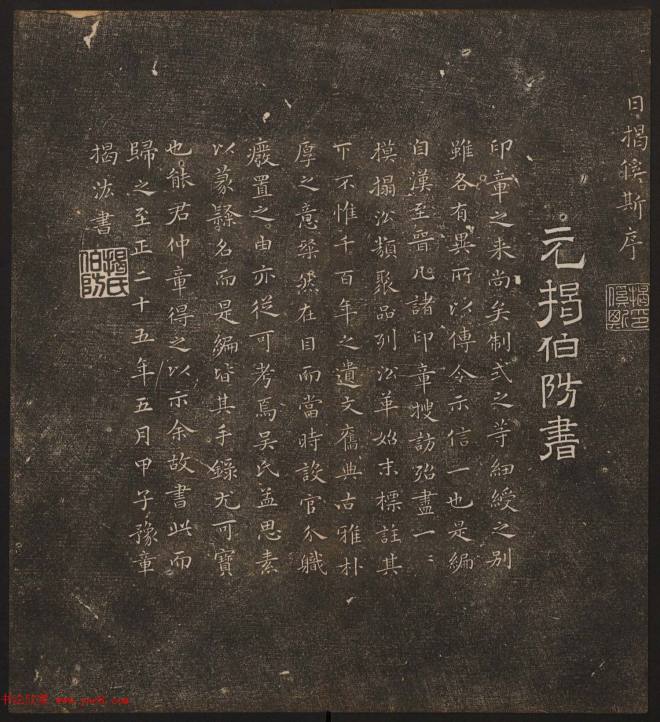 日揭傒斯序
元揭伯防書
印章之来尚矣制式之等細綬之別
雖各有異所以傳令示信一也是編
自漢至晉凡諸印章搜訪殆盡一〻
摸搨沿類聚品列沿革始末標註其
下不惟千百年之遺文舊典古雅朴
厚之意粲然在目而當時設官分職
癈置之由亦從可考焉吳氏孟思素
以篆隸名而是編皆其手錄尤可寶
也熊君仲章得之以示余故書此而
歸之至正二十五年五月甲子豫章
揭汯書
揭氏伯防